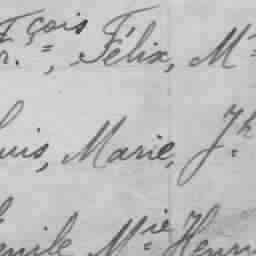 çois
Félix, M
uis, Marie, Jh
Mie Henri